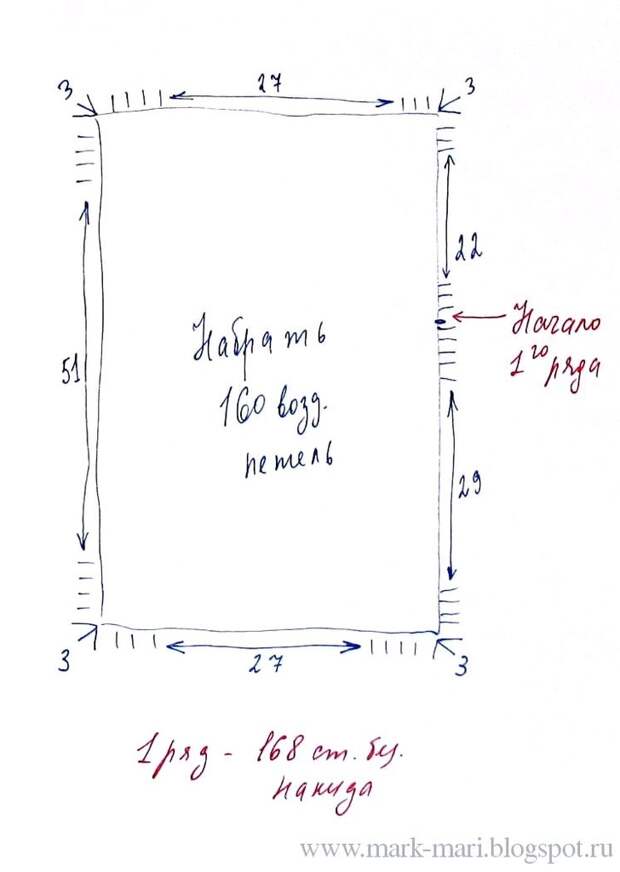 27
3
3
22
Начало
1го ряда
51
Набрать
160 возд.
петель
29
3
27
3
1 ряд - 168 ст. без.
накида
www.mark-mari.blogspot.ru